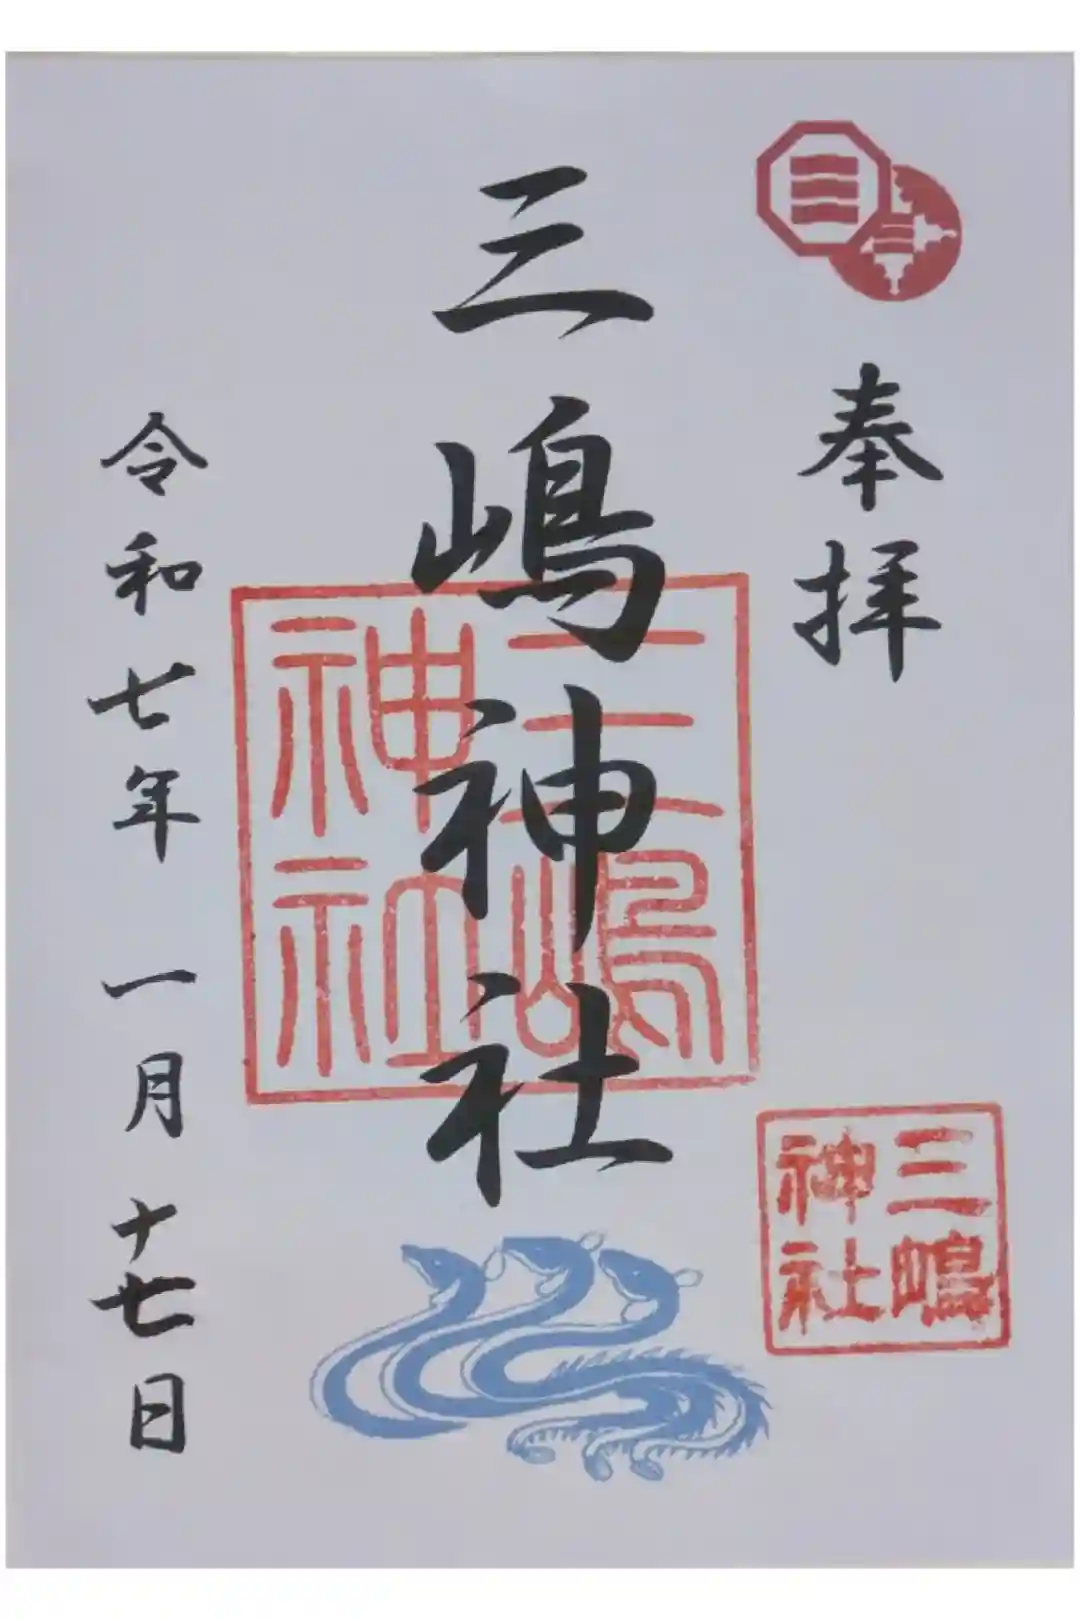 奉拝
三嶋神社
三嶋
神社
三嶋
神社
令和七年一月十七日